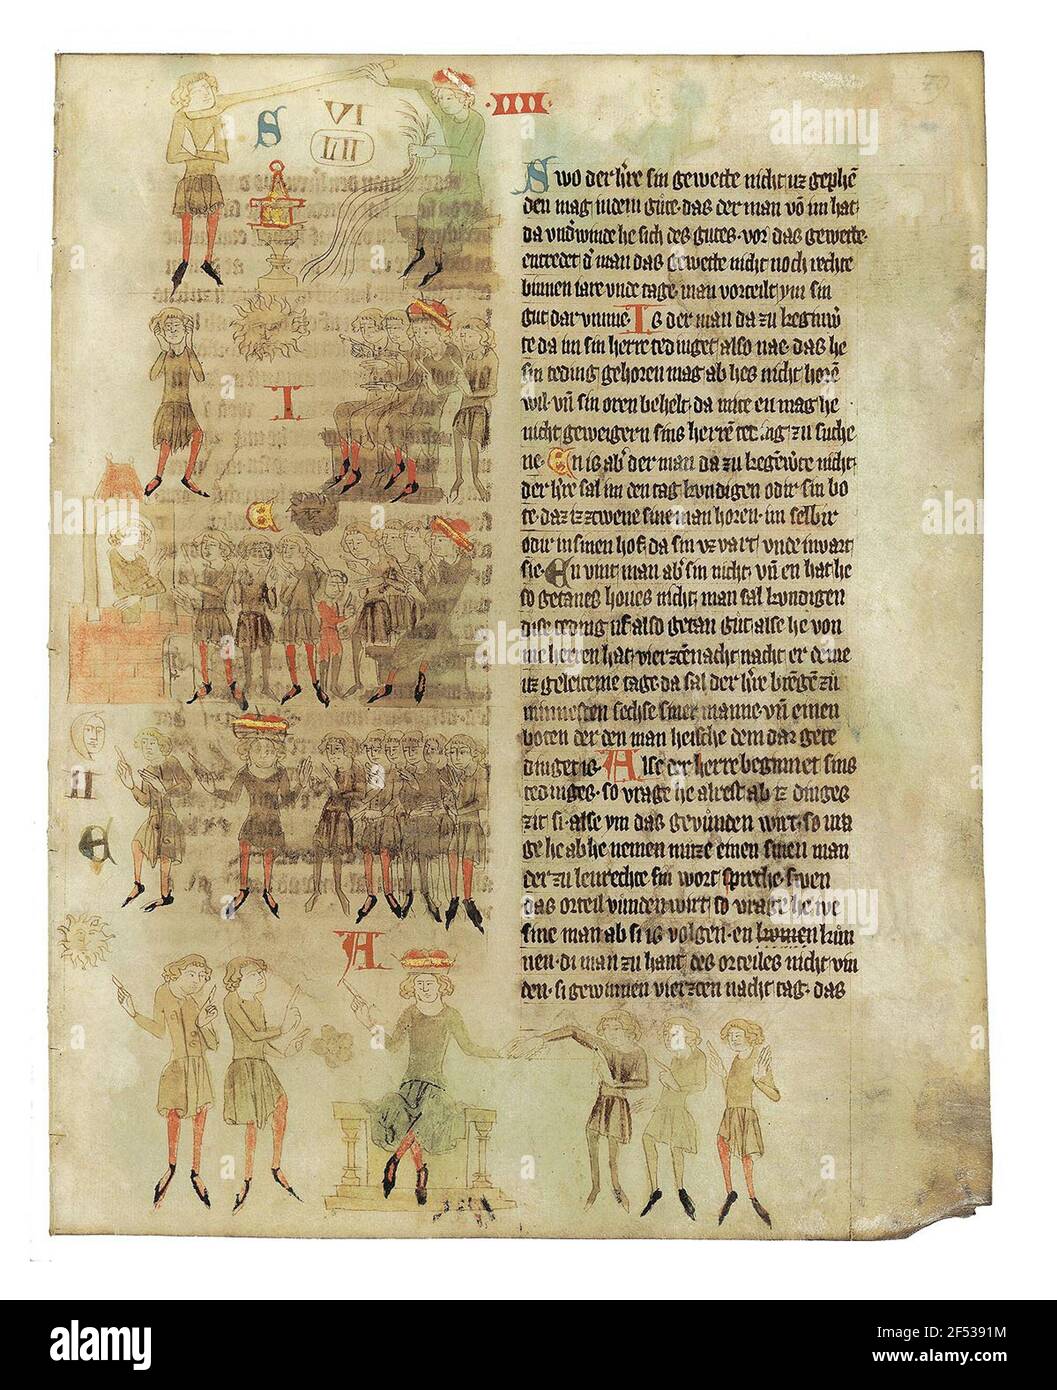 IIII
S
VI
LII
Swo der h're sin gewette nicht uz gephe
den mag in dem gute. das der man vō im hat.
da vnd'winde he sich des gutes. vor das gewette.
entredet d' man das gewette nicht noch rechte
binnen iare vnde tage. man vorteilt ym sin
gut dar vmme. Is der man da zu keginw'
te da im sin herre tedinget also nae. das he
sin teding gehoren mag ab hes nicht horen
wil. vn̄ sin oren behelt. da mite en mag he
nicht geweigern sins herrē zu suche
ne. En is ab' der man da zu kegēw'te nicht.
der h're sal im den tag kundigen odir sin bo
te. daz iz zwene sine man horen. im selbir
odir in sinen hof. da sin vz vart vnde invart
sie. En vint man ab' sin nicht. vn̄ en hat he
so getanes houes nicht. man sal kundigen
dise teding uf also getan gut. alse he von
me herren hat. vierzcē nacht nacht er deme
uz geleiteme tage. da sal der h're brēgē zu
minnesten sechse siner manne. vn̄ einen
boten der den man heische dem dar gete
dinget is. Alse der herre beginnet sins
tedinges. so vrage he alrest ab iz dinges
zit si. alse ym das gevunden wirt. so vra
ge he ab he nemen muze einen sinen man
der zu lenrechte sin wort spreche. swen
das orteil vunden wirt so vrage he ive
sine man ab si is volgen. en komen kun
nen. di man zu hant des orteiles nicht vin
den. si gewinnen vierzcen nacht tag. das
I
E
II
E
A
alamy
Image ID: 2F5391M
www.alamy.com